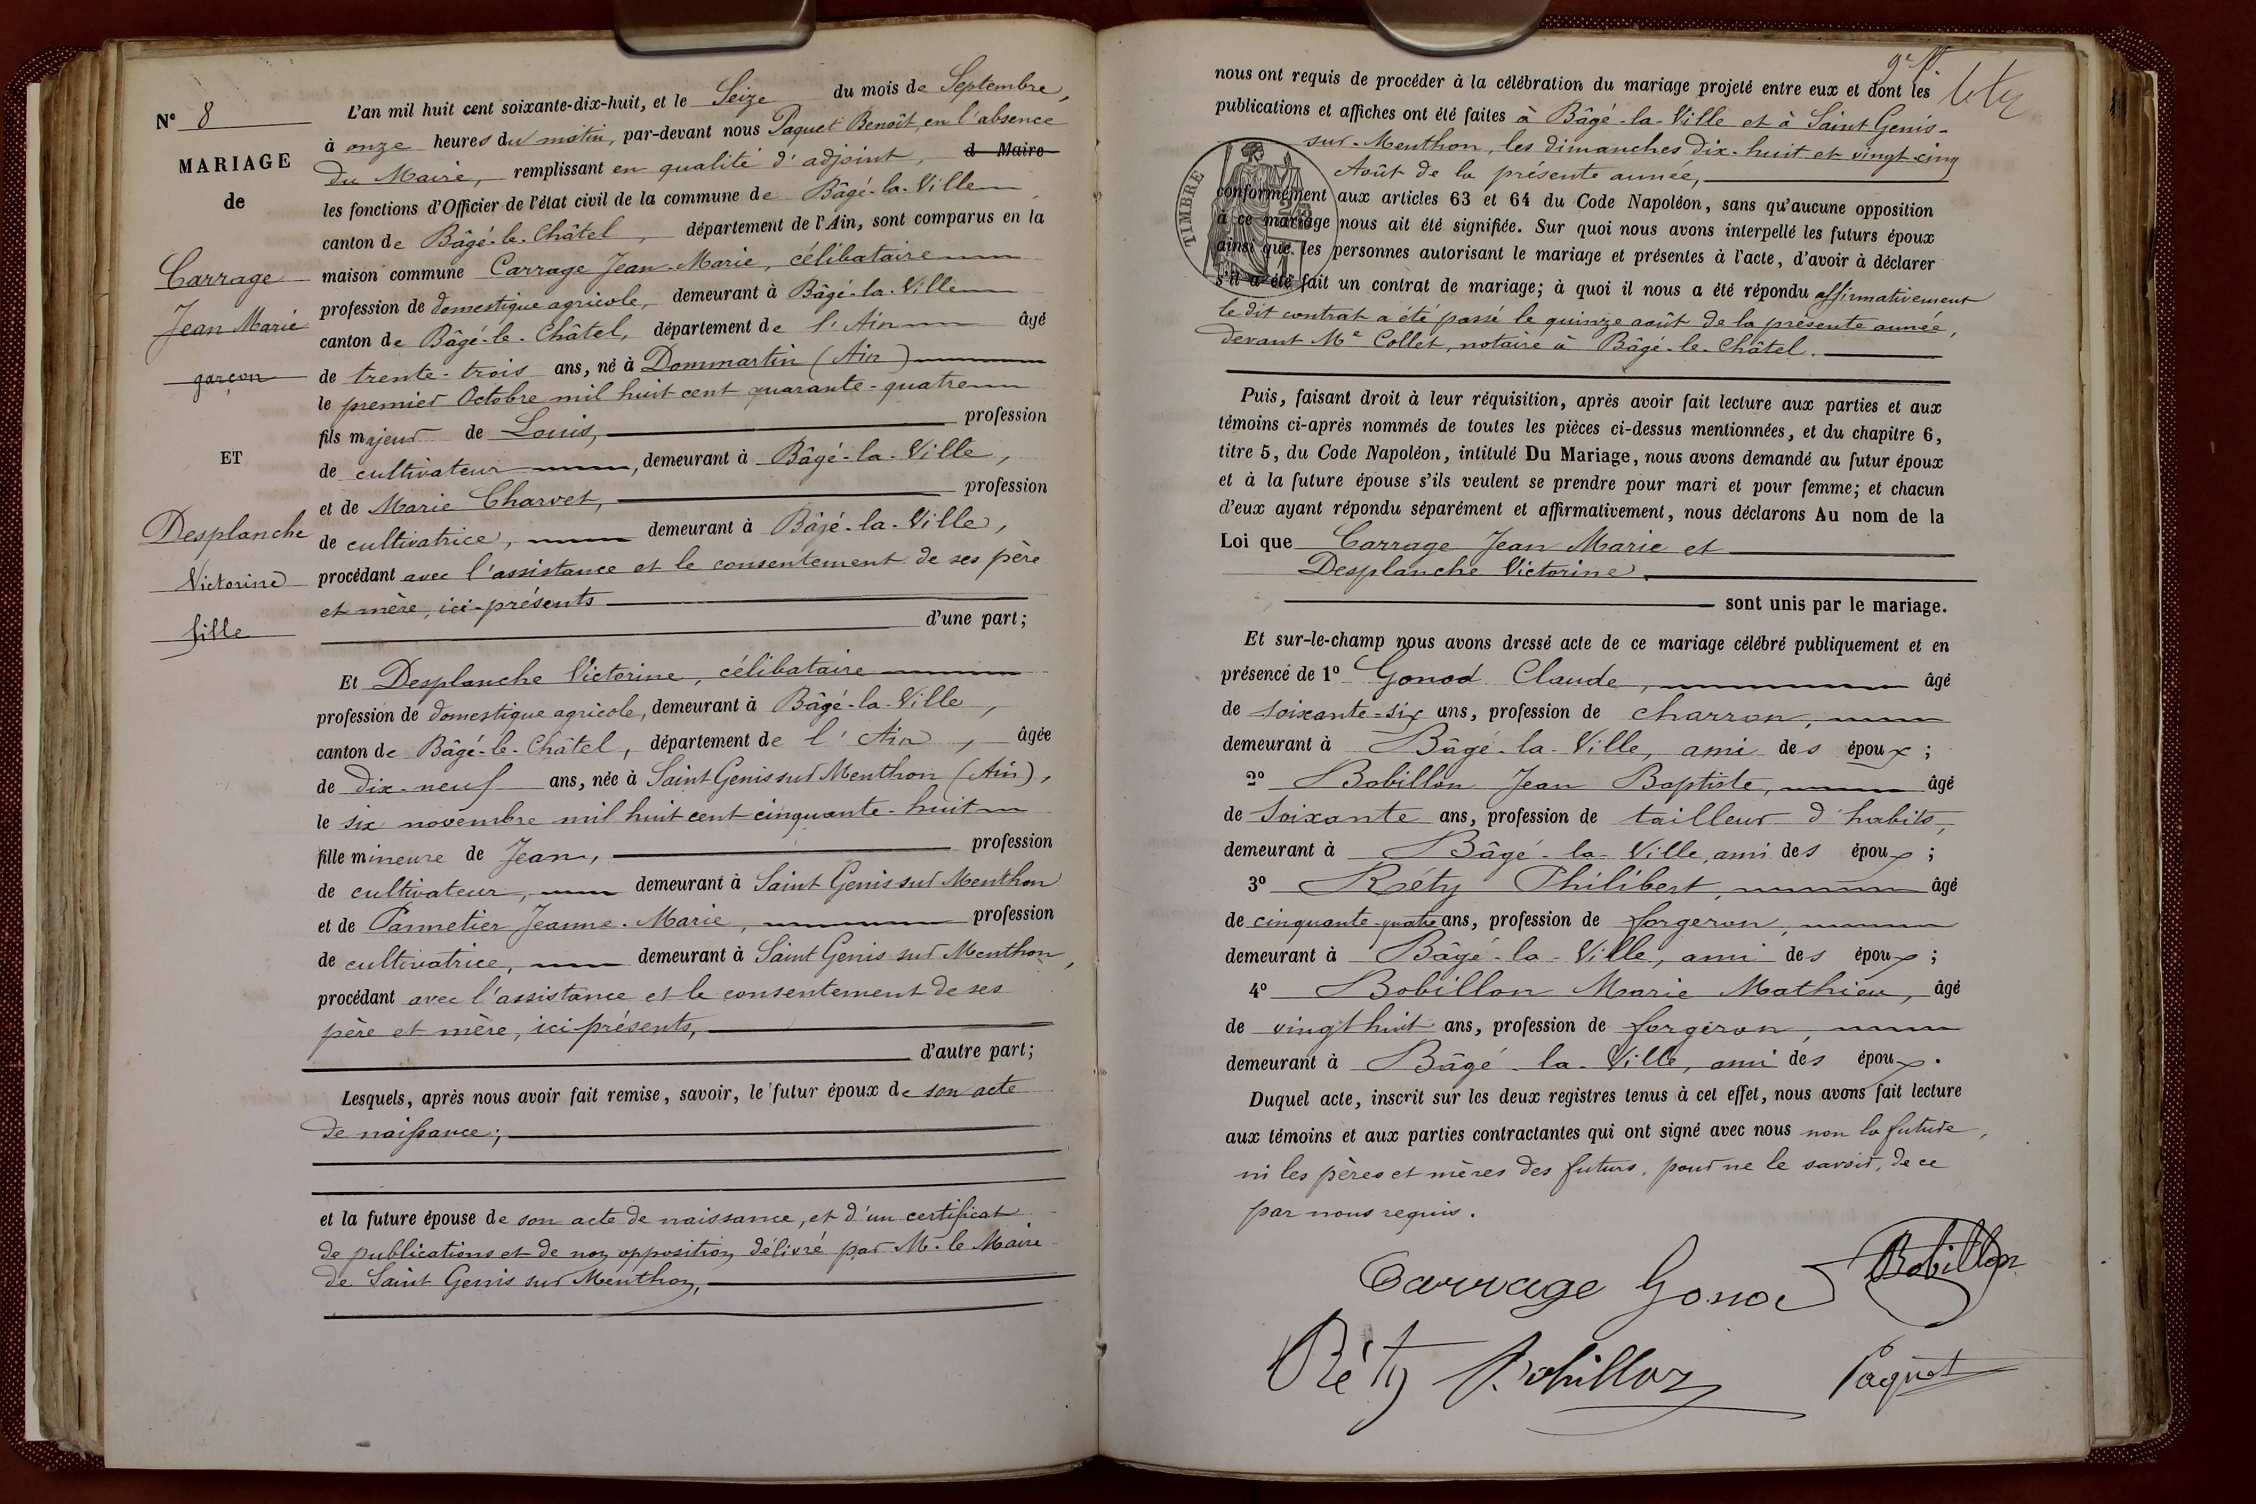 N° 8
MARIAGE
de
Carrage
Jean Marie
garçon
ET
Desplanche
Victorine
fille
L'an mil huit cent soixante-dix-huit, et le Seize du mois de Septembre,
à onze heures du matin, par-devant nous Paquet Benoît, en l'absence
du Maire, remplissant en qualité d'adjoint, d Maire
les fonctions d'Officier de l'état civil de la commune de Bâgé-la-Ville
canton de Bâgé-le-Châtel, département de l'Ain, sont comparus en la
maison commune Carrage Jean-Marie, célibataire
profession de domestique agricole, demeurant à Bâgé-la-Ville
canton de Bâgé-le-Châtel, département de l'Ain âgé
de trente-trois ans, né à Dommartin (Ain)
le premier Octobre mil huit cent quarante-quatre
fils majeur de Louis, profession
de cultivateur, demeurant à Bâgé-la-Ville,
et de Marie Charvet, profession
de cultivatrice, demeurant à Bâgé-la-Ville,
procédant avec l'assistance et le consentement de ses père
et mère, ici-présents
d'une part;
Et Desplanche Victorine, célibataire
profession de domestique agricole, demeurant à Bâgé-la-Ville,
canton de Bâgé-le-Châtel, département de l'Ain, âgée
de dix-neuf ans, née à Saint Genis sur Menthon (Ain),
le six novembre mil huit cent cinquante-huit
fille mineure de Jean, profession
de cultivateur, demeurant à Saint Genis sur Menthon
et de Pannetier Jeanne-Marie, profession
de cultivatrice, demeurant à Saint Genis sur Menthon,
procédant avec l'assistance et le consentement de ses
père et mère, ici-présents,
d'autre part;
Lesquels, après nous avoir fait remise, savoir, le futur époux de son acte
de naissance;
et la future épouse de son acte de naissance, et d'un certificat
de publications et de non opposition délivré par M. le Maire
de Saint Genis sur Menthon,
nous ont requis de procéder à la célébration du mariage projeté entre eux et dont les
publications et affiches ont été faites à Bâgé-la-Ville et à Saint Genis-
sur-Menthon, les dimanches dix-huit et vingt-cinq
Août de la présente année,
TIMBRE
conformément aux articles 63 et 64 du Code Napoléon, sans qu'aucune opposition
à ce mariage nous ait été signifiée. Sur quoi nous avons interpellé les futurs époux
ainsi que les personnes autorisant le mariage et présentes à l'acte, d'avoir à déclarer
s'il a été fait un contrat de mariage; à quoi il nous a été répondu affirmativement
le dit contrat a été passé le quinze août de la présente année,
devant Me Collet, notaire à Bâgé-le-Châtel.
Puis, faisant droit à leur réquisition, après avoir fait lecture aux parties et aux
témoins ci-après nommés de toutes les pièces ci-dessus mentionnées, et du chapitre 6,
titre 5, du Code Napoléon, intitulé Du Mariage, nous avons demandé au futur époux
et à la future épouse s'ils veulent se prendre pour mari et pour femme; et chacun
d'eux ayant répondu séparément et affirmativement, nous déclarons Au nom de la
Loi que Carrage Jean Marie et
Desplanche Victorine
sont unis par le mariage.
Et sur-le-champ nous avons dressé acte de ce mariage célébré publiquement et en
présence de 1° Gonod Claude, âgé
de soixante-six ans, profession de charron,
demeurant à Bâgé-la-Ville, ami des époux;
2° Bobillon Jean Baptiste, âgé
de soixante ans, profession de tailleur d'habits,
demeurant à Bâgé-la-Ville, ami des époux;
3° Réty Philibert, âgé
de cinquante-quatre ans, profession de forgeron,
demeurant à Bâgé-la-Ville, ami des époux;
4° Bobillon Marie Mathieu, âgé
de vingt huit ans, profession de forgeron,
demeurant à Bâgé-la-Ville, ami des époux.
Duquel acte, inscrit sur les deux registres tenus à cet effet, nous avons fait lecture
aux témoins et aux parties contractantes qui ont signé avec nous non la future,
ni les pères et mères des futurs, pour ne le savoir, de ce
par nous requis.
Carrage Gonod Bobillon
Réty Bobillon Paquet